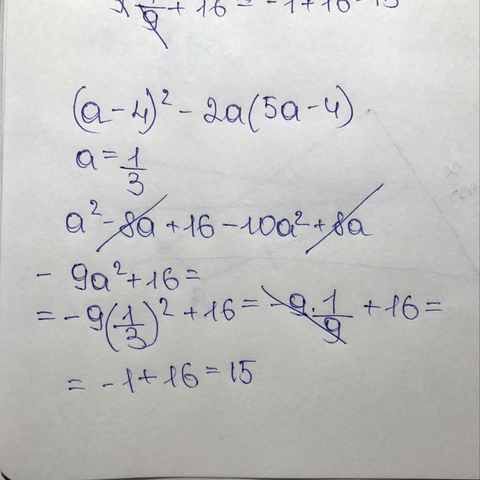 1/9 + 16 = -1+16=15
(a-4)² - 2a(5a-4)
a = 1/3
a² - 8a + 16 - 10a² + 8a
- 9a² + 16 =
= -9(1/3)² + 16 = -9·1/9 + 16 =
= -1 + 16 = 15